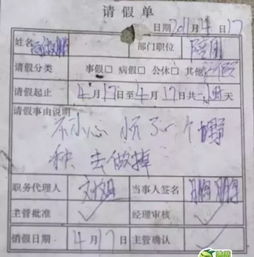 请假单
日期 2011年4月17
姓名 部门职位
请假分类 事假□ 病假□ 公休□ 其他
请假起止 4月17日至4月17日共 天
请假事由说明
不小心 怀了一个
种 去做掉
职务代理人 当事人签名
主管批准 ✓ 经理审核 ✓
请假日期 4月17日 主管确认 ✓